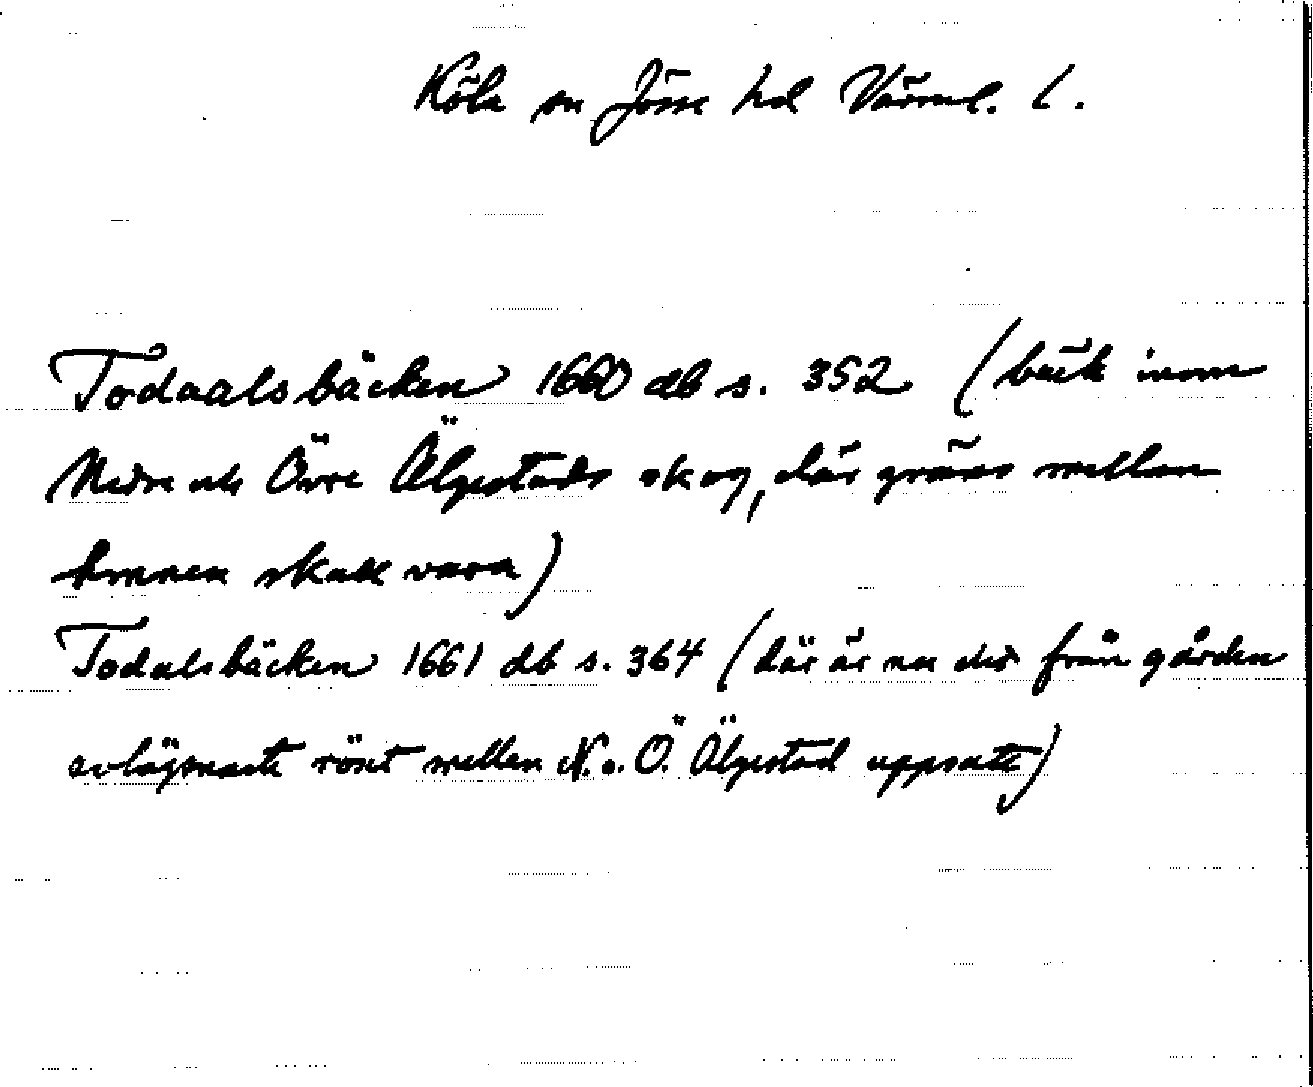 Köla sn Jösse hd Värml. l.
Todaalsbäcken 1660 db s. 352 (bäck inom
Nedre och Övre Älgestads skog, där gräns mellan
hemmen skall vara)
Todalsbäcken 1661 db s. 364 (där är nu det från gården
avlägsnaste röset mellan N. o. Ö. Älgestad uppsatt)